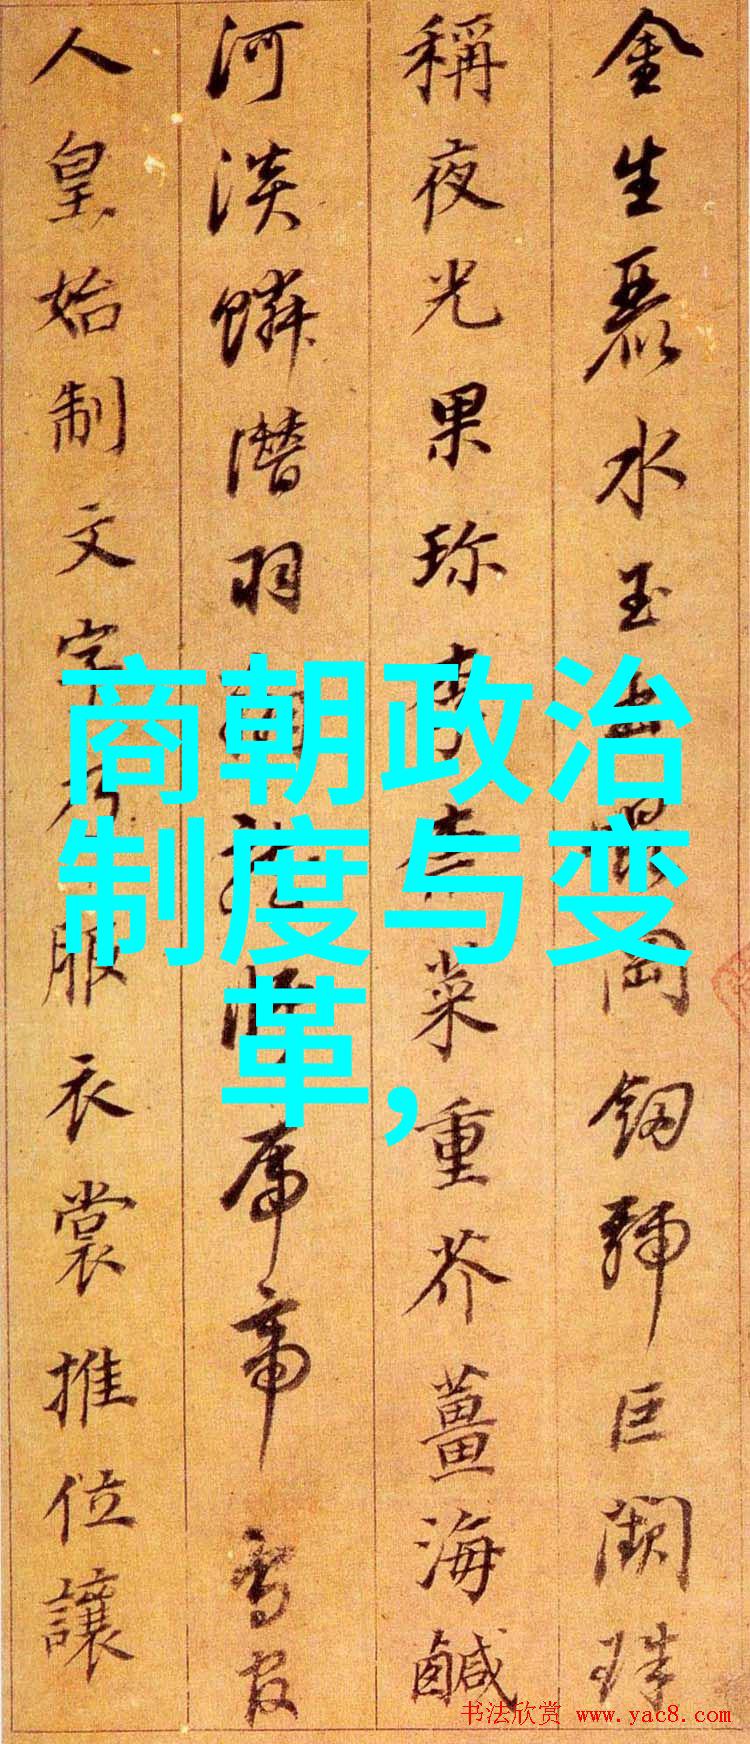 金生麗水玉出崑岡劒號巨闕珠
稱夜光果珎李柰菜重芥薑海鹹
河淡鱗潛羽翔龍師帝鳥官
人皇始制文字乃服衣裳推位讓
商朝政治
制度与变
革,
书法欣赏 www.yac8.com